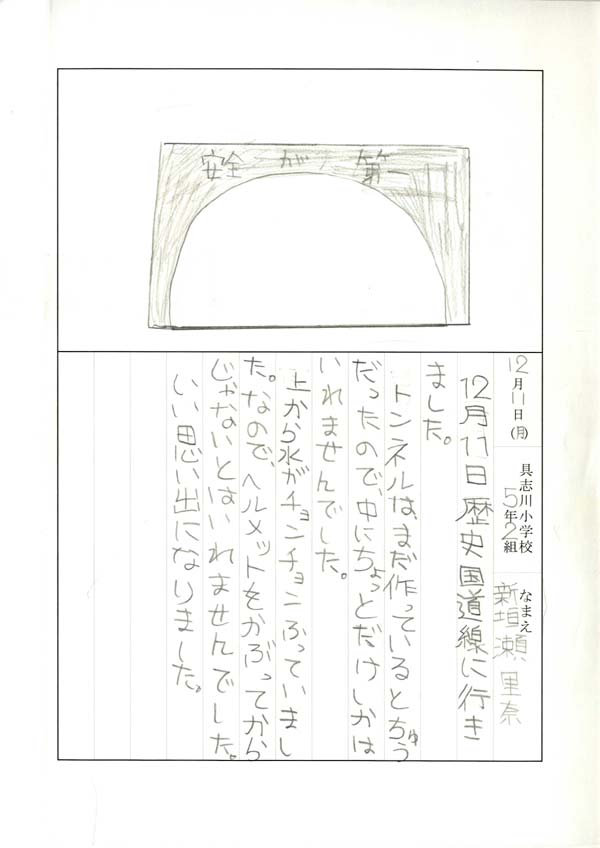 安全が第一
12月11日(月)
具志川小学校
5年2組
なまえ
新垣瀬里奈
12月11日歴史国道線に行き
ました。
トンネルは、まだ作っているとちゅう
だったので、中にちょっとだけしかは
いれませんでした。
上から水がチョンチョンふっていまし
た。なので、ヘルメットをかぶってから
じゃないとはいれませんでした。
いい思い出になりました。